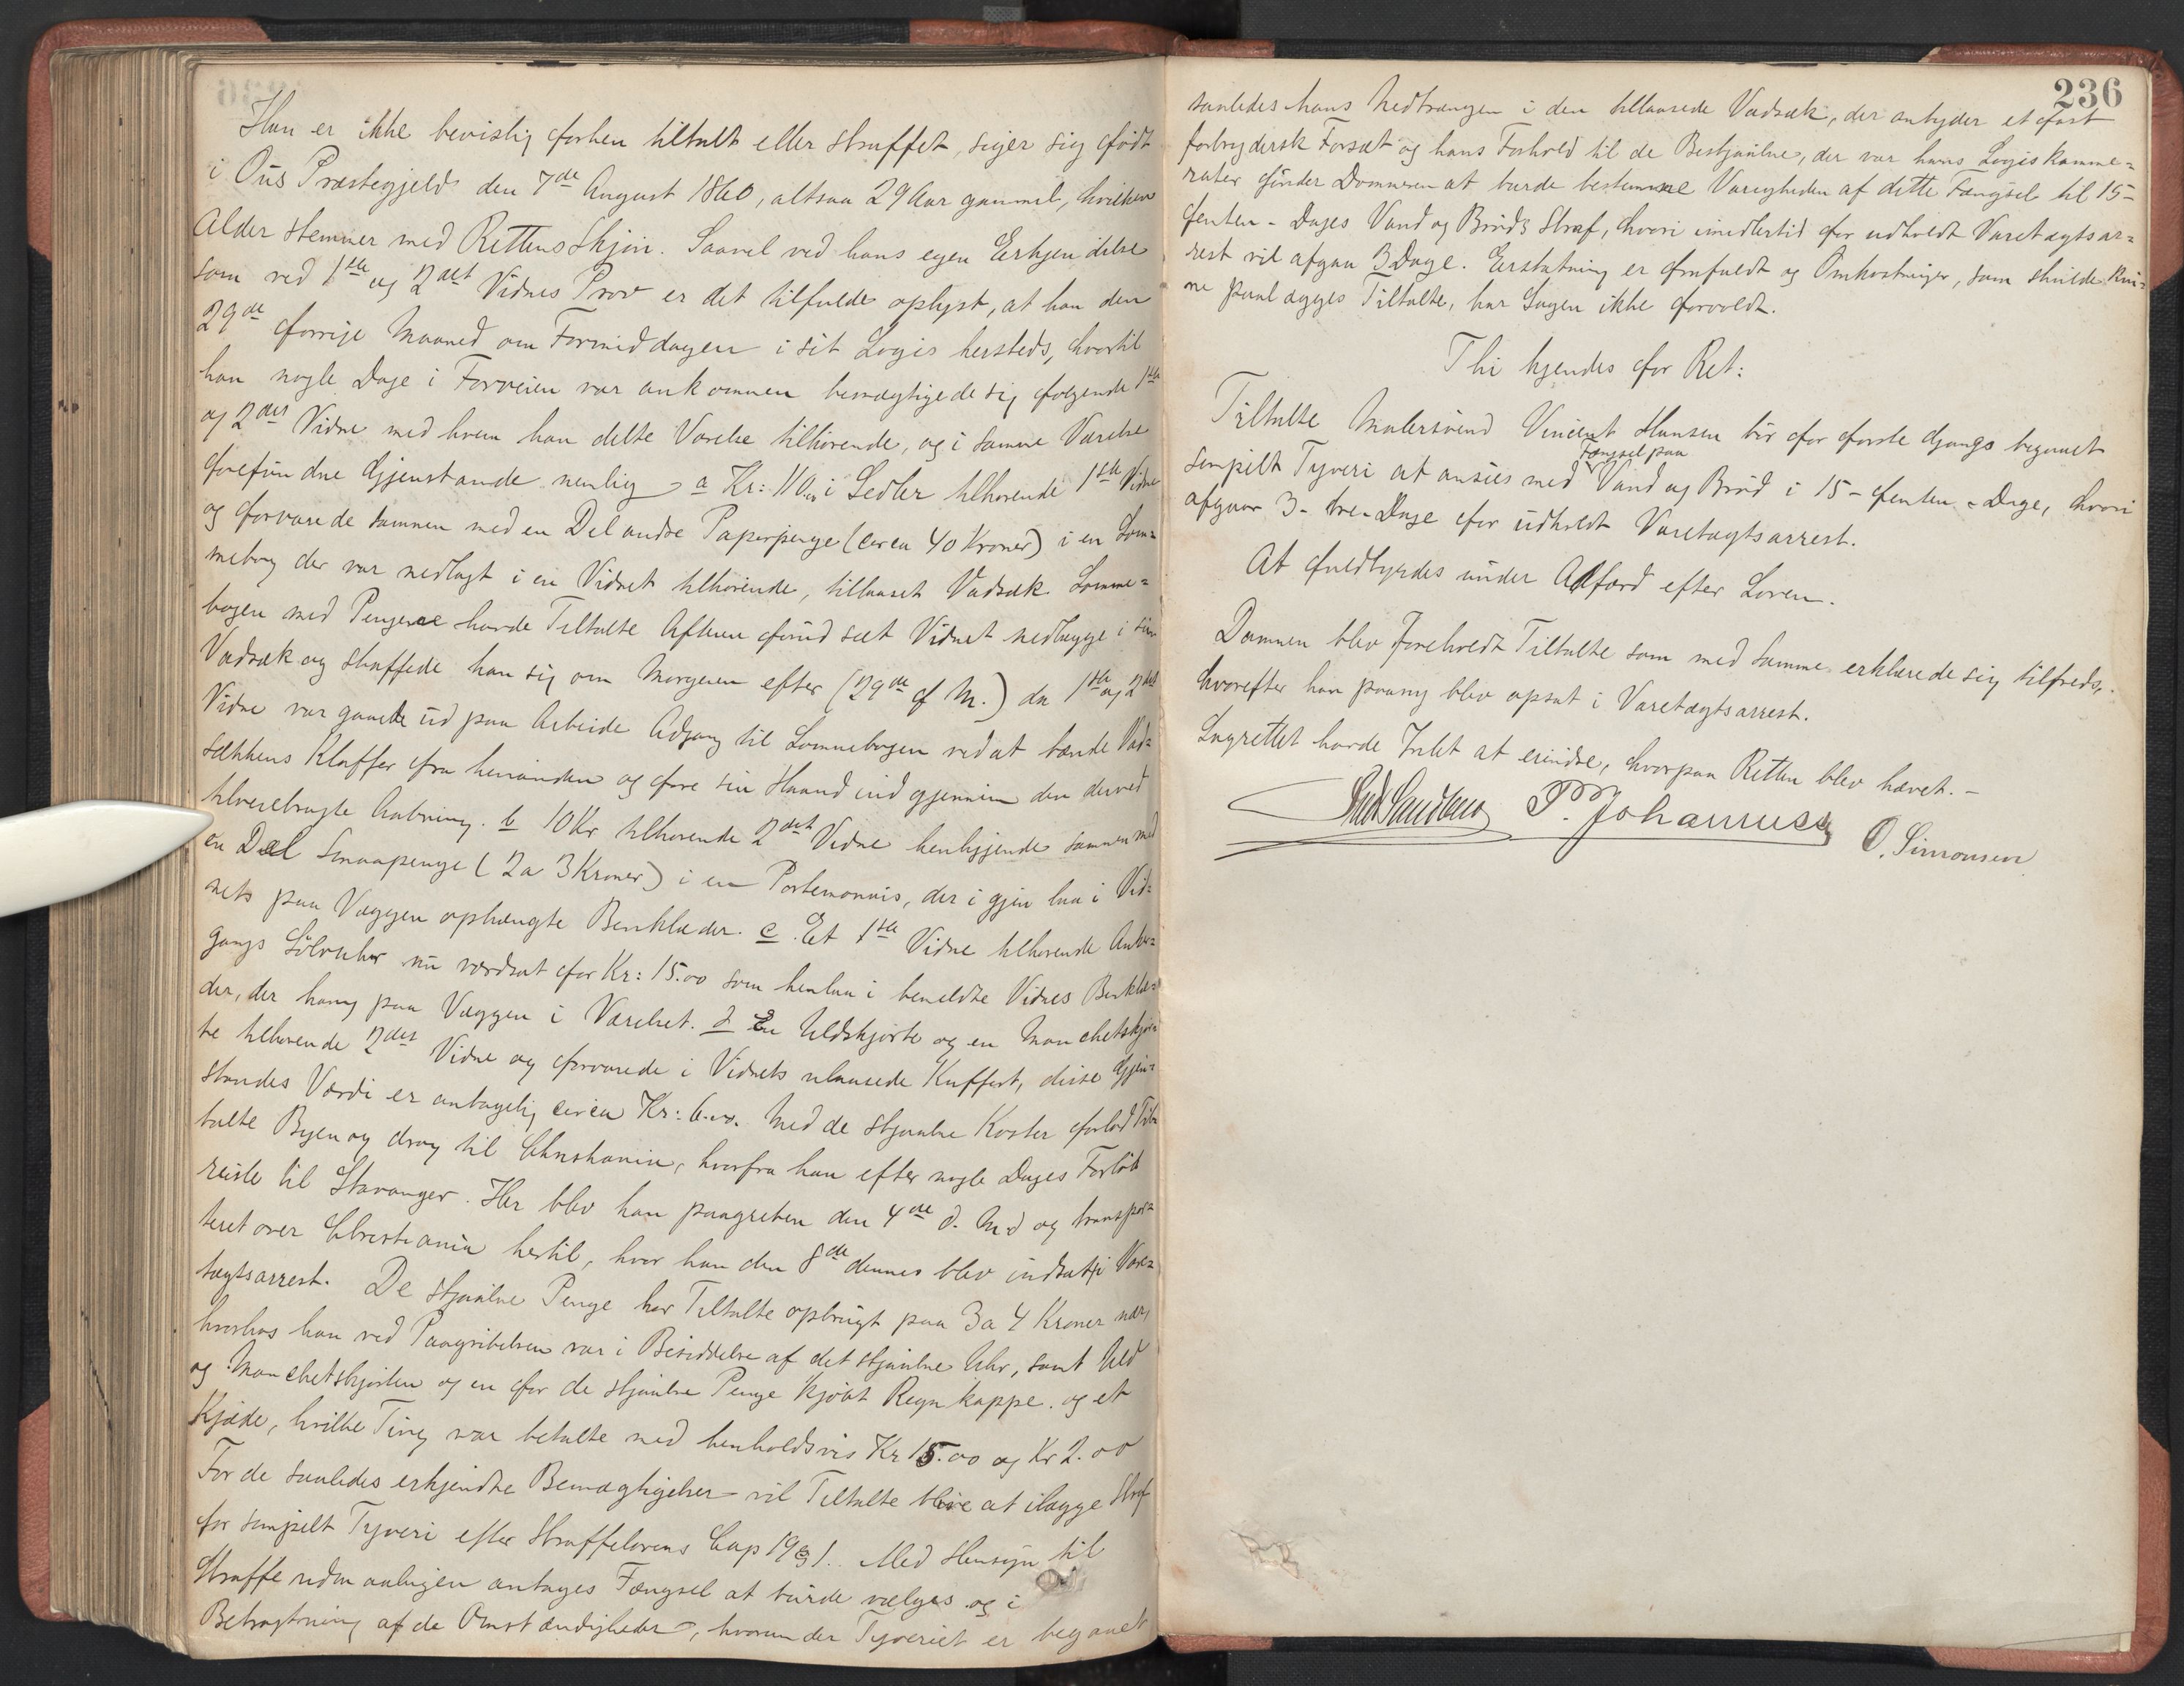 Han er ikke bevislig forhen tiltalt eller straffet, siger sig født
i Ous Præstegjeld den 7de August 1860, altsaa 29 Aar gammel, hvilken
Alder stemmer med Rettens Skjøn. Saavel ved hans egen Erkjendelse
som ved 1ste og 2det Vidnes Prov er det tilfulde oplyst, at han den
29de forrige Maaned om Formiddagen i sit Logis hersteds, hvortil
han nogle Dage i Forveien var ankommen bemægtigede sig følgende 1ste
og 2det Vidne med hvem han delte Værelse tilhørende, og i samme Værelse
forefundne Gjenstande nemlig a Kr: 110.00 i Sedler tilhørende 1ste Vidne
og forvarede sammen med en Del andre Papirpenge (circa 40 Kroner) i en Lom=
mebog der var nedlagt i en Vidnet tilhørende, tillaaset Vadsæk. Lomme=
bogen med Pengene havde Tiltalte Aftenen forud seet Vidnet nedlægge i sin
Vadsæk og skaffede han sig om Morgenen efter (29de f. M.) da 1ste og 2det
Vidne var gaaede ud paa Arbeide Adgang til Lommebogen ved at bænde Vad=
sækkens Klaffer fra hinanden og føre sin Haand ind gjennem den derved
tilveiebragte Aabning. b 10 Kr tilhørende 2det Vidne henliggende sammen med
en Del Smaapenge (2 a 3 Kroner) i en Portemonnais, der igjen laa i Vid=
nets paa Væggen ophængte Benklæder. c. Et 1ste Vidne tilhørende Anker=
gangs Sølvuhr nu værdsat for Kr: 15.00 som henlaa i bemeldte Vidnes Benklæ=
der, der hang paa Væggen i Værelset. d En Uldskjorte og en Manchetskjor=
te tilhørende 2det Vidne og forvarede i Vidnets ulaasede Kuffert, disse Gjen=
standes Værdi er antagelig circa Kr: 6.00. Med de stjaalne Koster forlod Til=
talte Byen og drog til Christiania, hvorfra han efter nogle Dages Forløb
reiste til Stavanger. Her blev han paagreben den 4de d. Md og transpor=
teret over Christiania hertil, hvor han den 8de dennes blev indsat i Vare=
tægtsarrest. De stjaalne Penge har Tiltalte opbrugt paa 3 a 4 Kroner nær,
hvorhos han ved Paagribelsen var i Besiddelse af det stjaalne Uhr, samt Uld
og Manchetskjorten og en for de stjaalne Penge kjøbt Regnkappe. og et
Kjæde, hvilke Ting var betalte med henholdsvis Kr 15.00 og Kr 2.00
For de saaledes erkjendte Bemægtigelser vil Tiltalte blive at ilægge Straf
for simpelt Tyveri efter Straffelovens Cap 19 § 1. Med Hensyn til
Straffeudmaalingen antages Fængsel at burde vælges og i
Betragtning af de Omstændigheder, hvorunder Tyveriet er begaaet
236
saaledes hans Nedtrængen i den tillaasede Vadsæk, der antyder et fast
forbrydersk Forsæt og hans Forhold til de Bestjaalne, der var hans Logiskamme=
rater finder Dommeren at burde bestemme Varigheden af dette Fængsel til 15-
femten - Dages Vand og Brøds Straf, hvori imidlertid for udholdt Varetægtsar=
rest vil afgaa 3 Dage. Erstatning er frafaldt og Omkostninger, som skulde kun=
ne paalægges Tiltalte, har Sagen ikke forvoldt.
Thi kjendes for Ret:
Tiltalte Malersvend Vincent Hansen bør for første Gangs begaaet
Fængsel paa
simpelt Tyveri at ansees med Vand og Brød i 15 - femten - Dage, hvori
afgaar 3 - tre - Dage for udholdt Varetægtsarrest.
At fuldbyrdes under Adfærd efter Loven.
Dommen blev foreholdt Tiltalte som med samme erklærede sig tilfreds,
hvorefter han paany blev opsat i Varetægtsarrest.
Lagrettet havde Intet at erindre, hvorpaa Retten blev hævet. -
P. Johannessen
O. Simonsen